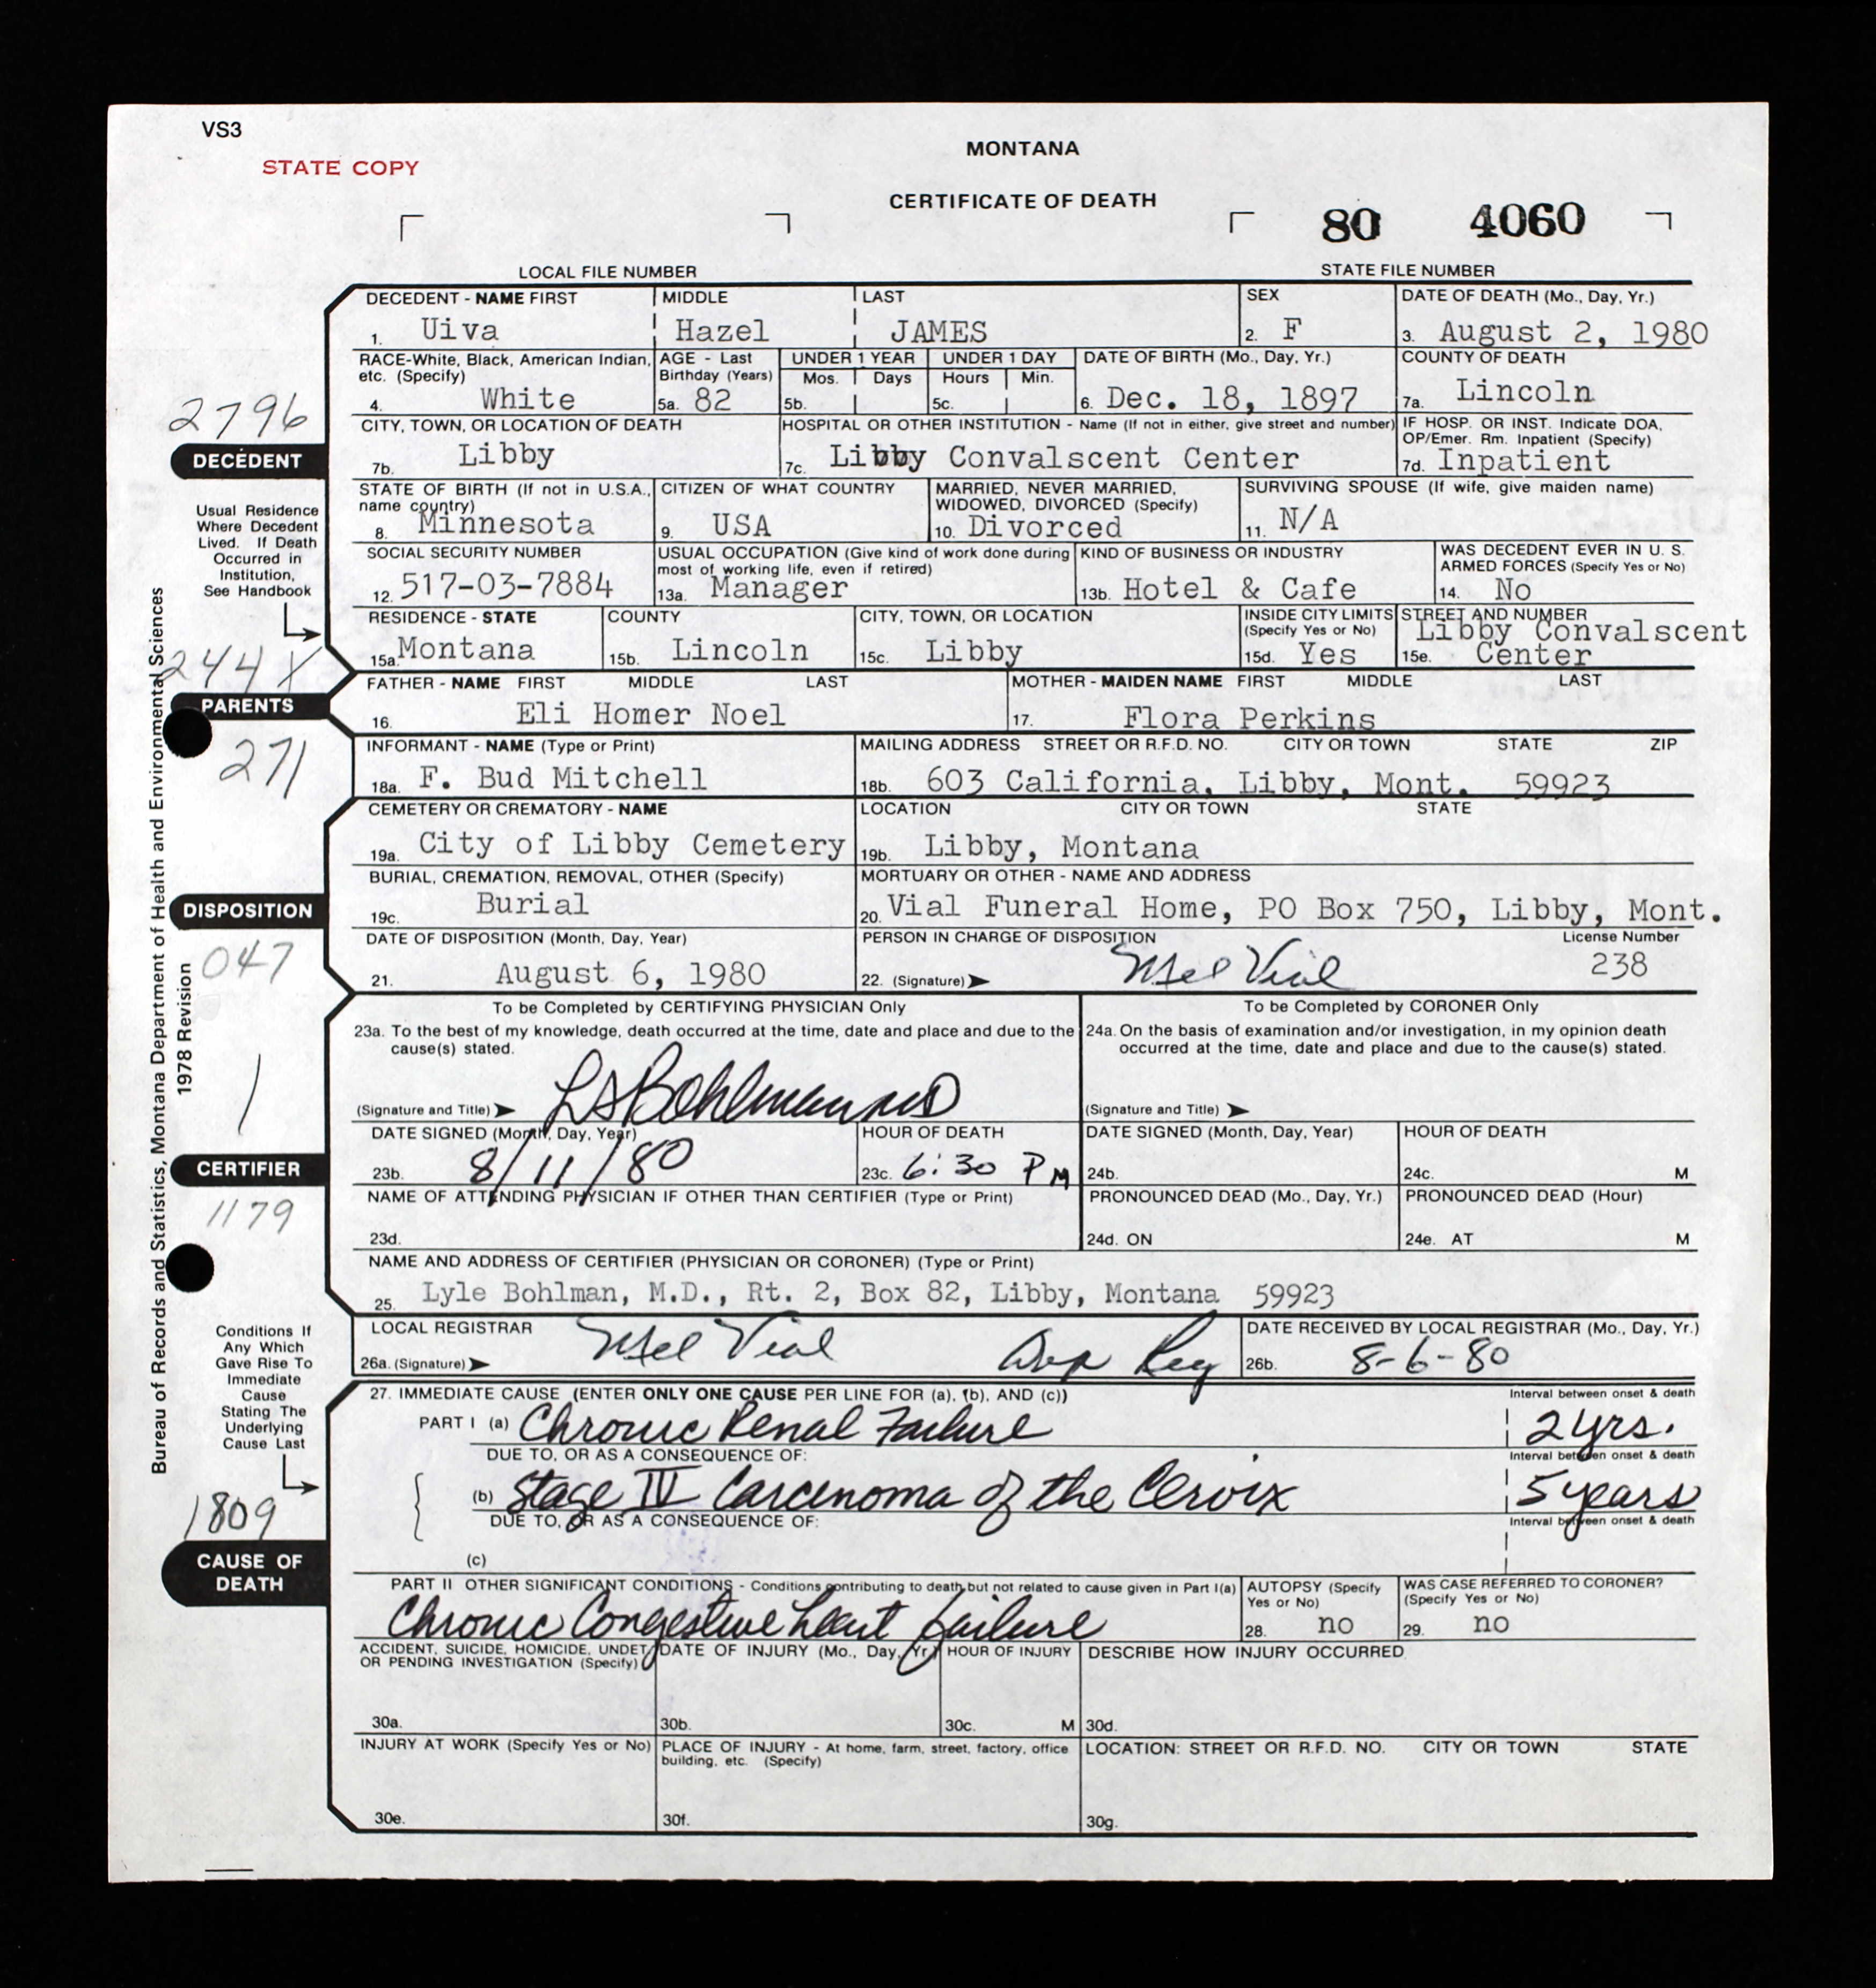 VS3
STATE COPY
MONTANA
CERTIFICATE OF DEATH
80 4060
LOCAL FILE NUMBER STATE FILE NUMBER
DECEDENT - NAME FIRST MIDDLE LAST SEX DATE OF DEATH (Mo., Day, Yr.)
1. Uiva Hazel JAMES 2. F 3. August 2, 1980
RACE-White, Black, American Indian, etc. (Specify) AGE - Last Birthday (Years) UNDER 1 YEAR Mos. Days UNDER 1 DAY Hours Min. DATE OF BIRTH (Mo., Day, Yr.) COUNTY OF DEATH
4. White 5a. 82 5b. 5c. 6. Dec. 18, 1897 7a. Lincoln
2796
DECEDENT
CITY, TOWN, OR LOCATION OF DEATH HOSPITAL OR OTHER INSTITUTION - Name (If not in either, give street and number) IF HOSP. OR INST. Indicate DOA, OP/Emer. Rm. Inpatient (Specify)
7b. Libby 7c. Libby Convalscent Center 7d. Inpatient
STATE OF BIRTH (If not in U.S.A., name country) CITIZEN OF WHAT COUNTRY MARRIED, NEVER MARRIED, WIDOWED, DIVORCED (Specify) SURVIVING SPOUSE (If wife, give maiden name)
8. Minnesota 9. USA 10. Divorced 11. N/A
Usual Residence
Where Decedent
Lived. If Death
Occurred in
Institution,
See Handbook
SOCIAL SECURITY NUMBER USUAL OCCUPATION (Give kind of work done during most of working life, even if retired) KIND OF BUSINESS OR INDUSTRY WAS DECEDENT EVER IN U. S. ARMED FORCES (Specify Yes or No)
12. 517-03-7884 13a. Manager 13b. Hotel & Cafe 14. No
RESIDENCE - STATE COUNTY CITY, TOWN, OR LOCATION INSIDE CITY LIMITS (Specify Yes or No) STREET AND NUMBER
15a. Montana 15b. Lincoln 15c. Libby 15d. Yes 15e. Libby Convalscent Center
244X
PARENTS
FATHER - NAME FIRST MIDDLE LAST MOTHER - MAIDEN NAME FIRST MIDDLE LAST
16. Eli Homer Noel 17. Flora Perkins
271
INFORMANT - NAME (Type or Print) MAILING ADDRESS STREET OR R.F.D. NO. CITY OR TOWN STATE ZIP
18a. F. Bud Mitchell 18b. 603 California, Libby, Mont. 59923
CEMETERY OR CREMATORY - NAME LOCATION CITY OR TOWN STATE
19a. City of Libby Cemetery 19b. Libby, Montana
DISPOSITION
BURIAL, CREMATION, REMOVAL, OTHER (Specify) MORTUARY OR OTHER - NAME AND ADDRESS
19c. Burial 20. Vial Funeral Home, PO Box 750, Libby, Mont.
047
DATE OF DISPOSITION (Month, Day, Year) PERSON IN CHARGE OF DISPOSITION License Number
21. August 6, 1980 22. (Signature) Mel Vial 238
Bureau of Records and Statistics, Montana Department of Health and Environmental Sciences
1978 Revision
To be Completed by CERTIFYING PHYSICIAN Only To be Completed by CORONER Only
23a. To the best of my knowledge, death occurred at the time, date and place and due to the cause(s) stated. 24a. On the basis of examination and/or investigation, in my opinion death occurred at the time, date and place and due to the cause(s) stated.
1
(Signature and Title) LS Bohlman MD (Signature and Title)
DATE SIGNED (Month, Day, Year) HOUR OF DEATH DATE SIGNED (Month, Day, Year) HOUR OF DEATH
CERTIFIER
23b. 8/11/80 23c. 6:30 P M 24b. 24c. M
1179
NAME OF ATTENDING PHYSICIAN IF OTHER THAN CERTIFIER (Type or Print) PRONOUNCED DEAD (Mo., Day, Yr.) PRONOUNCED DEAD (Hour)
23d. 24d. ON 24e. AT M
NAME AND ADDRESS OF CERTIFIER (PHYSICIAN OR CORONER) (Type or Print)
25. Lyle Bohlman, M.D., Rt. 2, Box 82, Libby, Montana 59923
LOCAL REGISTRAR DATE RECEIVED BY LOCAL REGISTRAR (Mo., Day, Yr.)
26a. (Signature) Mel Vial Dep Reg 26b. 8-6-80
Conditions If
Any Which
Gave Rise To
Immediate
Cause
Stating The
Underlying
Cause Last
27. IMMEDIATE CAUSE (ENTER ONLY ONE CAUSE PER LINE FOR (a), (b), AND (c)) Interval between onset & death
PART I (a) Chronic Renal Failure 2 yrs.
DUE TO, OR AS A CONSEQUENCE OF: Interval between onset & death
(b) Stage IV Carcenoma of the Cervix 5 years
DUE TO, OR AS A CONSEQUENCE OF: Interval between onset & death
1809
CAUSE OF
DEATH
(c)
PART II OTHER SIGNIFICANT CONDITIONS - Conditions contributing to death but not related to cause given in Part I(a) AUTOPSY (Specify Yes or No) WAS CASE REFERRED TO CORONER? (Specify Yes or No)
Chronic Congestive heart failure 28. no 29. no
ACCIDENT, SUICIDE, HOMICIDE, UNDET OR PENDING INVESTIGATION (Specify) DATE OF INJURY (Mo., Day, Yr.) HOUR OF INJURY DESCRIBE HOW INJURY OCCURRED
30a. 30b. 30c. M 30d.
INJURY AT WORK (Specify Yes or No) PLACE OF INJURY - At home, farm, street, factory, office building, etc. (Specify) LOCATION: STREET OR R.F.D. NO. CITY OR TOWN STATE
30e. 30f. 30g.